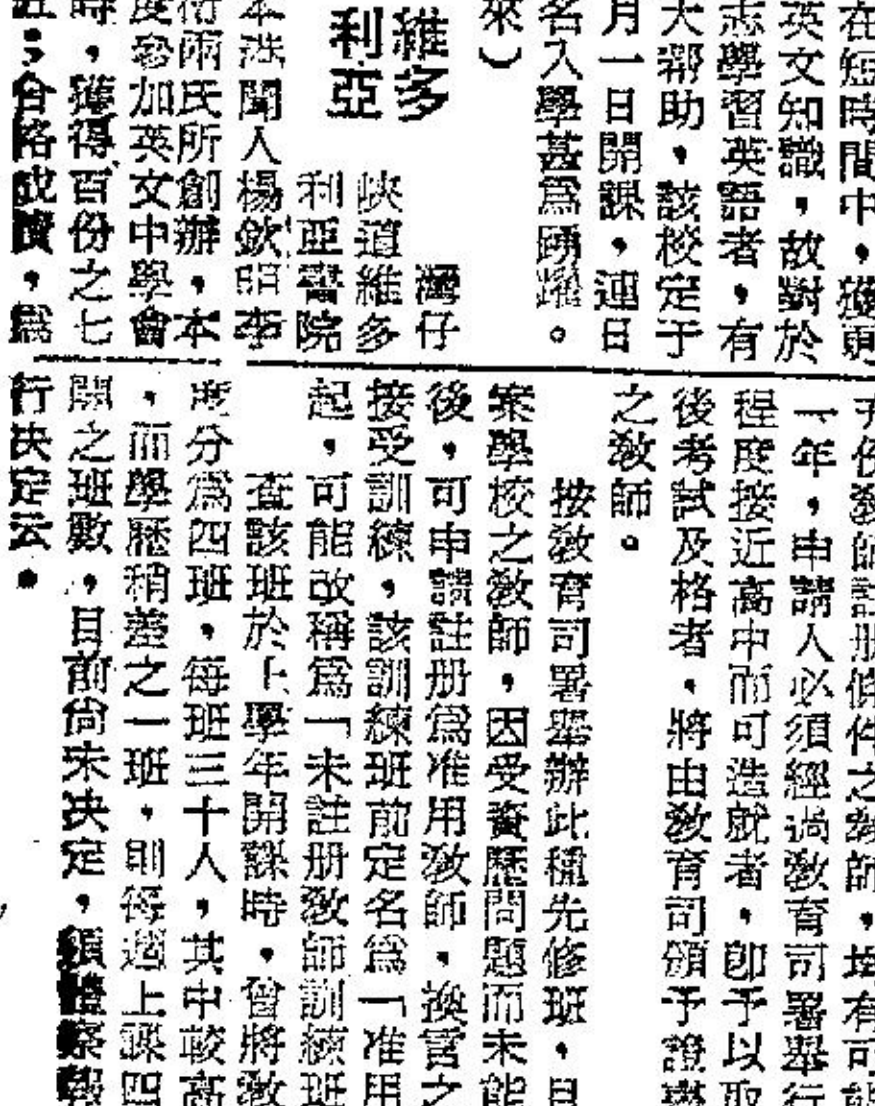 在短時間中,獲更
英文知識,故對於
志學習英語者,有
大帮助,該校定于
月一日開課,連日
名入學甚爲踴躍。
來)
維多
利亞
灣仔
峽道維多
利亞書院
本港聞人楊欽明李
兩氏所創辦,本
度參加英文中學會
時,獲得百份之七
合格成績,爲
一年,申請人必須經過敎育司署舉行
程度接近高中而可造就者,卽予以取
後考試及格者,將由敎育司頒予證
之敎師。
按敎育司署舉辦此種先修班,目
案學校之敎師,因受資歷問題而未能
後,可申請註册爲准用敎師,換言之
接受訓練,該訓練班前定名爲「准用
起,可能改稱爲「未註册敎師訓練班
查該班於上學年開課時,曾將敎
度分爲四班,每班三十人,其中較高
,而學歷稍差之一班,則每週上課四
開之班數,目前尚未決定,須體察
行決定云。